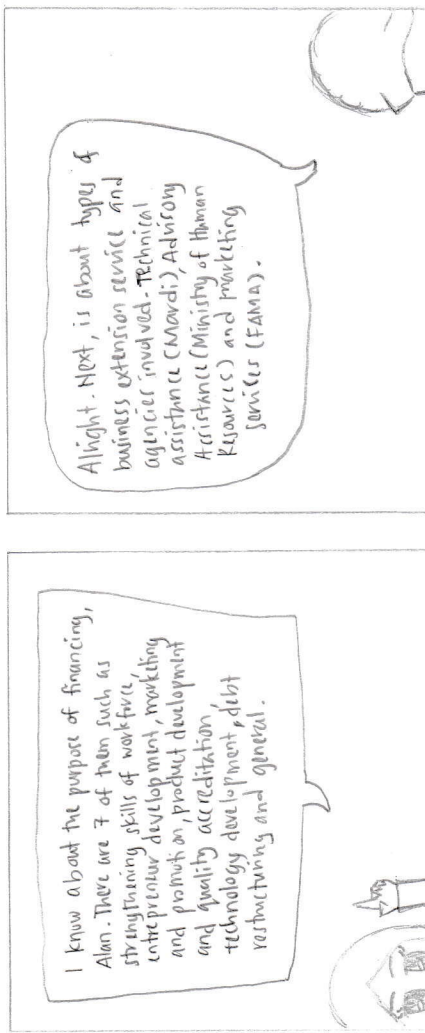 I know about the purpose of financing,
Alan. There are 7 of them such as
strenghtening skills of workforce,
entrepreneur development, marketing
and promotion, product development
and quality accreditation,
technology development, debt
restructuring and general.
Alright. Next, is about types of
business extension service and
agencies involved. Technical
assistance (Mardi), Advisory
Assistance (Ministry of Human
Resources) and marketing
services (FAMA).